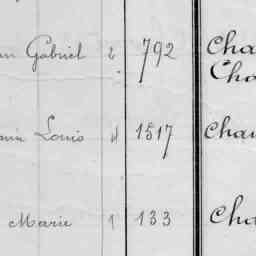 Gabriel 2 792 Cha
Cho
Louis 4 1517 Chau
Marie 1 133 Cho